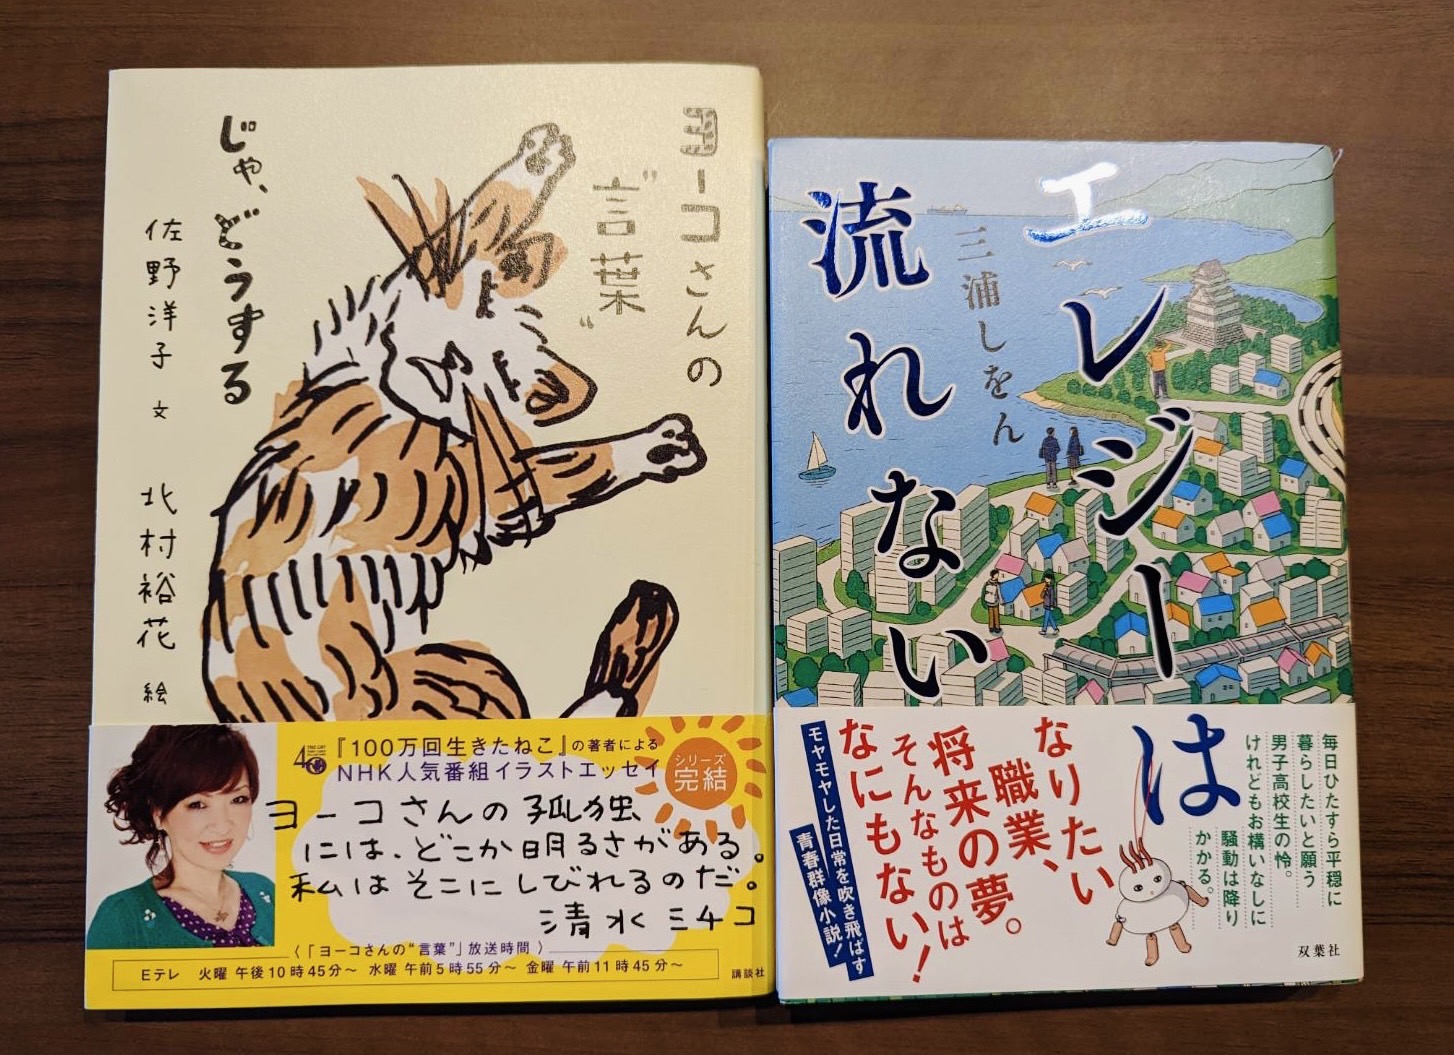 ヨーコさんの
"言葉"
じゃ、どうする
佐野洋子 文
北村裕花 絵
『100万回生きたねこ』の著者による
NHK人気番組イラストエッセイ
シリーズ
完結
ヨーコさんの孤独
には、どこか明るさがある。
私はそこにしびれるのだ。
清水ミチコ
〈「ヨーコさんの"言葉"」放送時間〉
Eテレ 火曜 午後10時45分〜 水曜 午前5時55分〜 金曜 午前11時45分〜
講談社
エレジーは
流れない
三浦しをん
毎日ひたすら平穏に
暮らしたいと願う
男子高校生の怜。
けれどもお構いなしに
騒動は降り
かかる。
なりたい
職業、
将来の夢。
そんなものは
なにもない!
モヤモヤした日常を吹き飛ばす
青春群像小説!
双葉社